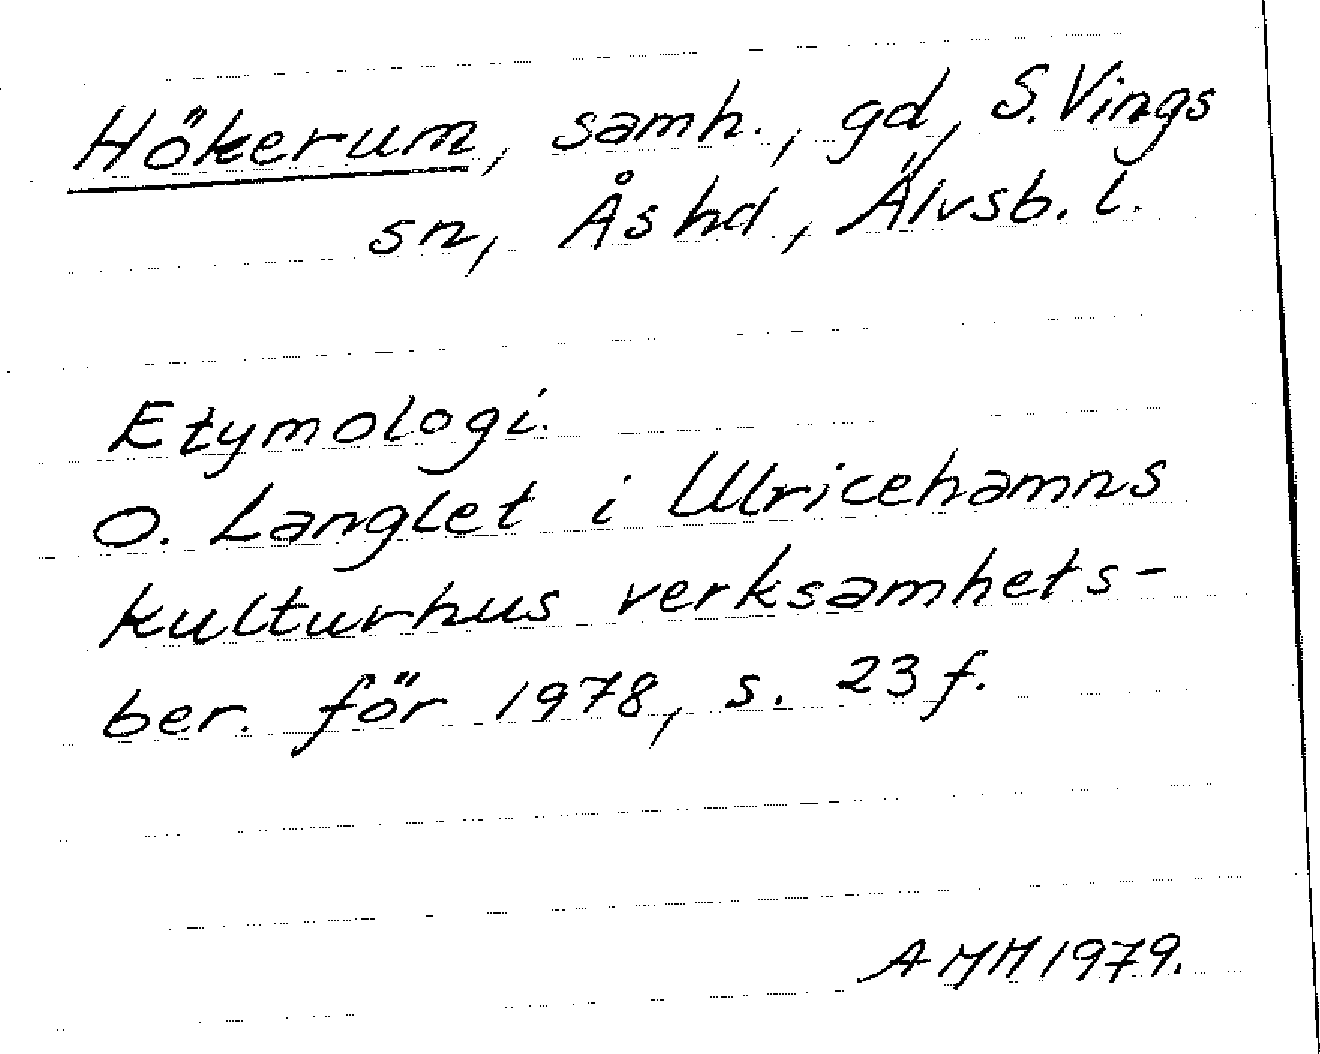 Hökerum, samh., gd, S. Vings
sn, Ås hd, Älvsb. l.
Etymologi.
O. Langlet i Ulricehamns
kulturhus verksamhets-
ber. för 1978, s. 23 f.
AMH 1979.